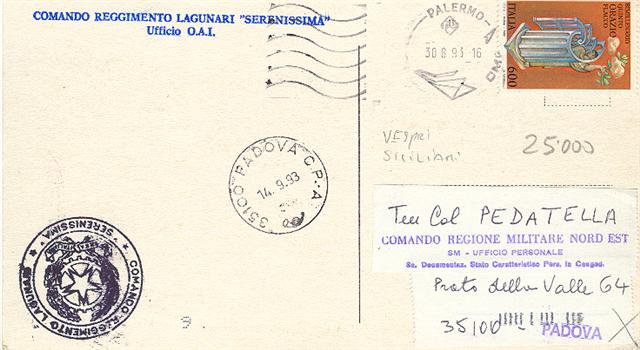 COMANDO REGGIMENTO LAGUNARI "SERENISSIMA"
Ufficio O.A.I.
PALERMO-A
30 8 93 16
BIMILLENARIO
QUINTO
ORAZIO
FLACCO
ITALIA
600
VESpri
Siciliani
25.000
35100 PADOVA C.P.-A
14.9.93
Ten Col PEDATELLA
COMANDO REGIONE MILITARE NORD EST
SM - UFFICIO PERSONALE
Sz. Documentaz. Stato Caratteristico Pers. in Congad.
Prato della Valle 64
35100 PADOVA
COMANDO REGGIMENTO LAGUNARI
★ SERENISSIMA ★
9